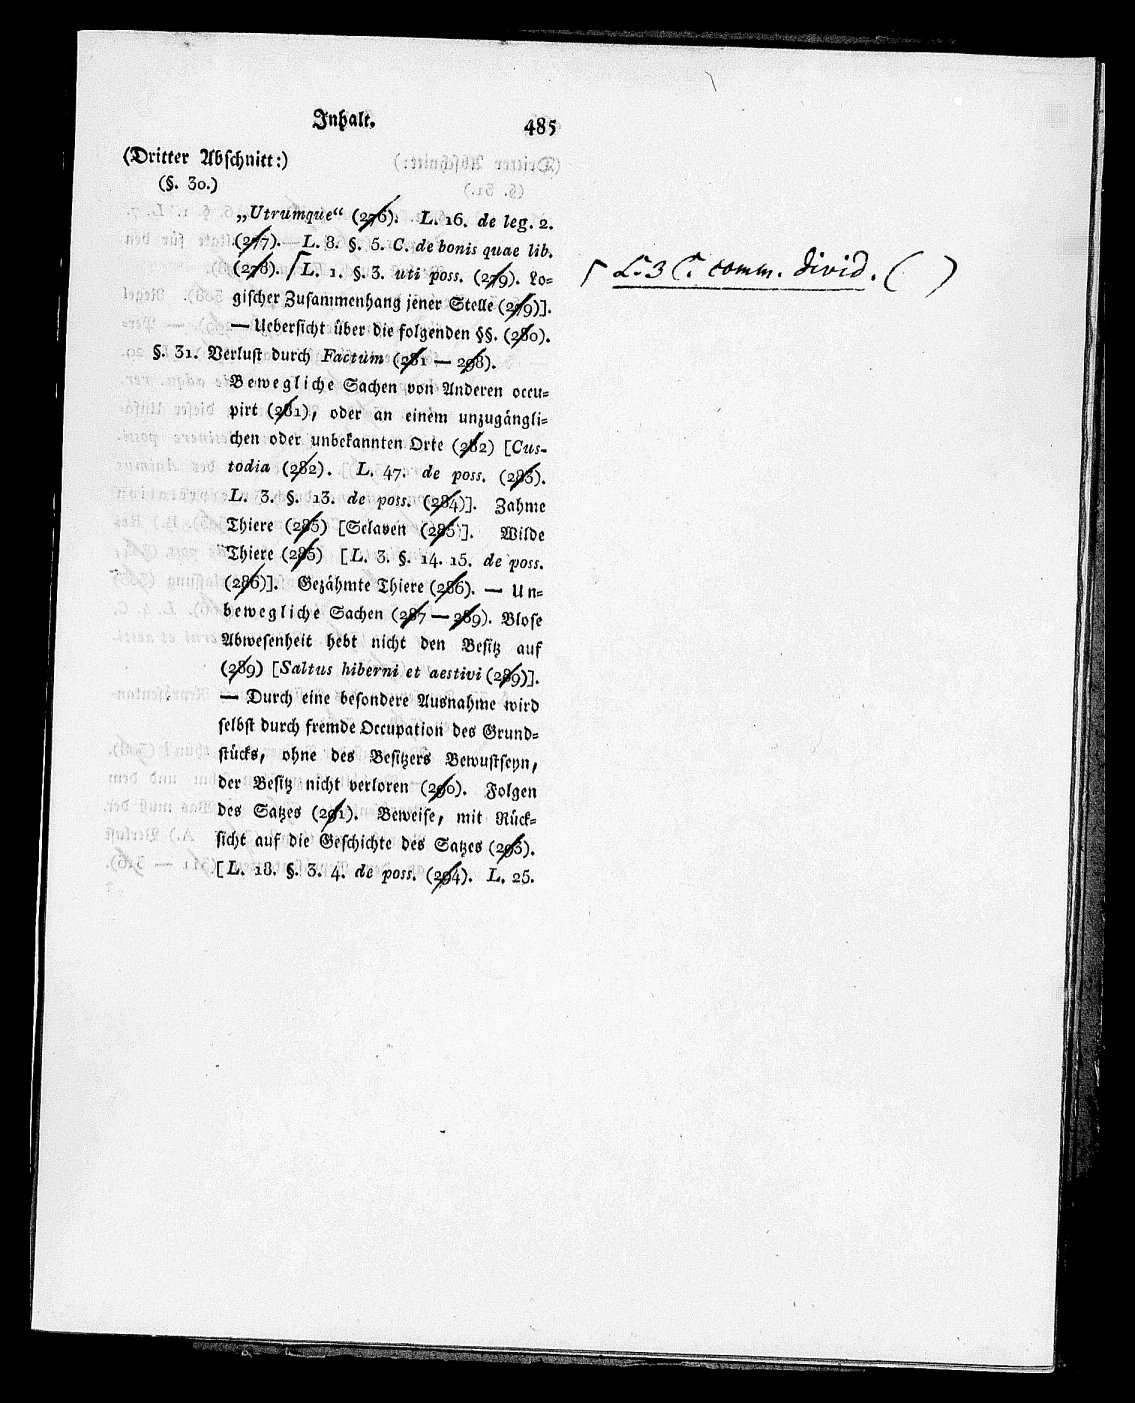 Inhalt. 485
(Dritter Abschnitt:)
(§. 30.)
„Utrumque“ (276). L. 16. de leg. 2.
(277). L. 8. §. 5. C. de bonis quae lib.
(278). ⌈L. 1. §. 3. uti poss. (279). Lo-
⌈ L. 3 C. comm. divid. ( )
gischer Zusammenhang jener Stelle (279)].
— Uebersicht über die folgenden §§. (280).
§. 31. Verlust durch Factum (281 — 298).
Bewegliche Sachen von Anderen occu-
pirt (281), oder an einem unzugängli-
chen oder unbekannten Orte (282) [Cus-
todia (282). L. 47. de poss. (283).
L. 3. §. 13. de poss. (284)]. Zahme
Thiere (285) [Sclaven (285)]. Wilde
Thiere (285) [L. 3. §. 14. 15. de poss.
(286)]. Gezähmte Thiere (286). — Un-
bewegliche Sachen (287 — 289). Blose
Abwesenheit hebt nicht den Besitz auf
(289) [Saltus hiberni et aestivi (289)].
— Durch eine besondere Ausnahme wird
selbst durch fremde Occupation des Grund-
stücks, ohne des Besitzers Bewustseyn,
der Besitz nicht verloren (290). Folgen
des Satzes (291). Beweise, mit Rück-
sicht auf die Geschichte des Satzes (293).
[L. 18. §. 3. 4. de poss. (294). L. 25.